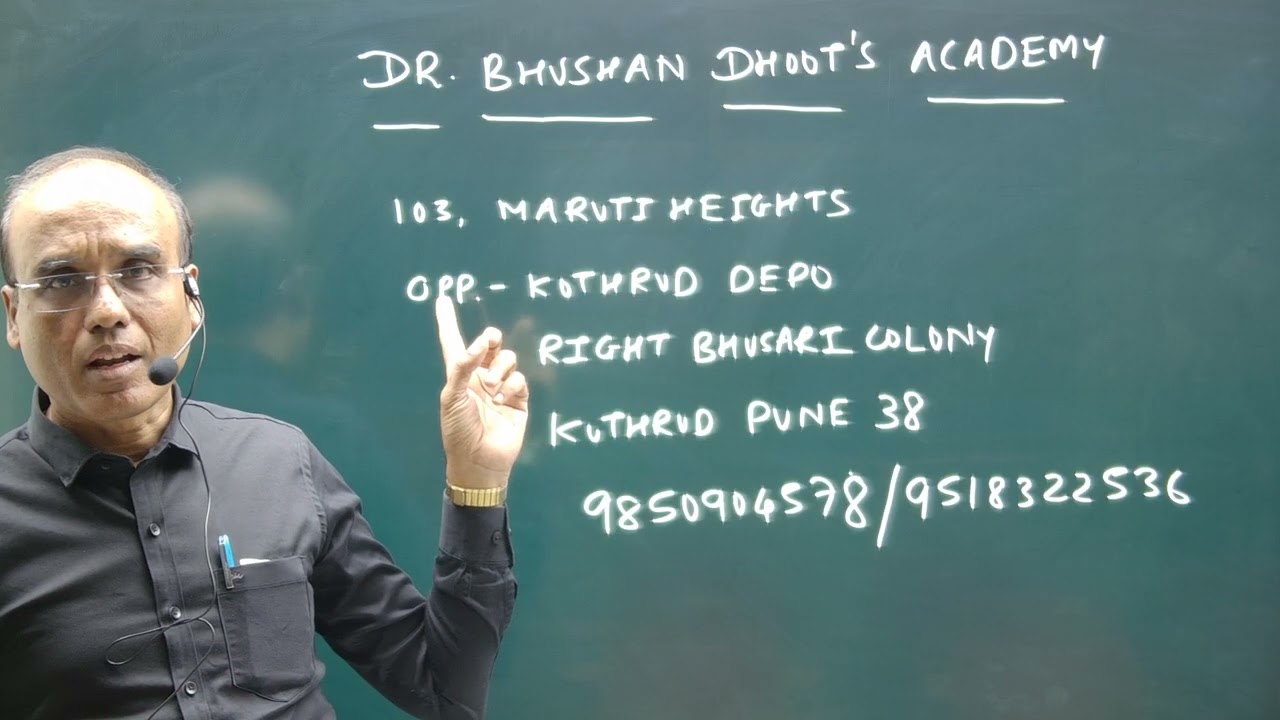 DR. BHUSHAN DHOOT'S ACADEMY
103, MARUTI HEIGHTS
OPP.- KOTHRUD DEPO
RIGHT BHUSARI COLONY
KOTHRUD PUNE 38
9850904578/9518322536